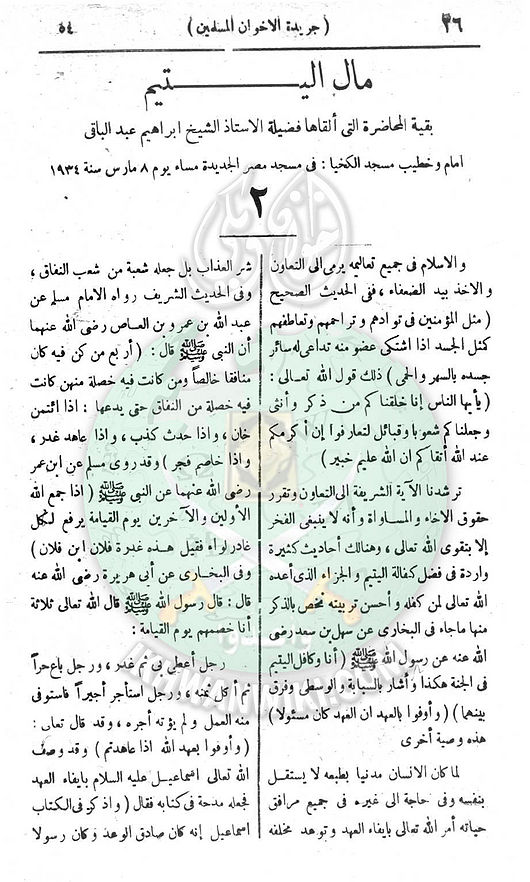 ٣٦
( جريدة الاخوان المسلمين )
٥٤
مال اليتيم
بقية المحاضرة التى ألقاها فضيلة الاستاذ الشيخ ابراهيم عبد الباقى
امام وخطيب مسجد الكخيا : فى مسجد مصر الجديدة مساء يوم ٨ مارس سنة ١٩٣٤
٢
والاسلام فى جميع تعاليمه يرمى الى التعاون
والاخذ بيد الضعفاء ، ففى الحديث الصحيح
( مثل المؤمنين فى توادهم وتراحمهم وتعاطفهم
كمثل الجسد اذا اشتكى عضو منه تداعى له سائر
جسده بالسهر والحمى ) ذلك قول الله تعالى :
( يأيها الناس إنا خلقناكم من ذكر وأنثى
وجعلناكم شعوبا وقبائل لتعارفوا إن أكرمكم
عند الله أتقاكم ان الله عليم خبير )
ترشدنا الآية الشريفة الى التعاون وتقرر
حقوق الاخاء والمساواة وأنه لا ينبغى الفخر
إلا بتقوى الله تعالى ، وهنالك أحاديث كثيرة
واردة فى فضل كفالة اليتيم والجزاء الذى أعده
الله تعالى لمن كفله وأحسن تربيته نخص بالذكر
منها ماجاء فى البخارى عن سهل بن سعد رضى
الله عنه عن رسول الله ﷺ ( أنا وكافل اليتيم
فى الجنة هكذا وأشار بالسبابة والوسطى وفرق
بينهما ) ( وأوفوا بالعهد ان العهد كان مسئولا )
هذه وصية أخرى
لما كان الانسان مدنيا بطبعه لا يستقل
بنفسه وفى حاجة الى غيره فى جميع مرافق
حياته أمر الله تعالى بايفاء العهد وتوعد مخلفه
شر العذاب بل جعله شعبة من شعب النفاق ،
وفى الحديث الشريف رواه الامام مسلم عن
عبد الله بن عمرو بن العاص رضى الله عنهما
أن النبى ﷺ قال : ( أربع من كن فيه كان
منافقا خالصاً ومن كانت فيه خصلة منهن كانت
فيه خصلة من النفاق حتى يدعها : اذا ائتمن
خان ، واذا حدث كذب ، واذا عاهد غدر ،
واذا خاصم فجر ) وقد روى مسلم عن ابن عمر
رضى الله عنهما عن النبى ﷺ ( اذا جمع الله
الأولين والآخرين يوم القيامة يرفع لكل
غادر لواء فقيل هذه غدرة فلان ابن فلان )
وفى البخارى عن أبى هريرة رضى الله عنه
قال : قال رسول الله ﷺ قال الله تعالى ثلاثة
أنا خصمهم يوم القيامة :
رجل أعطى بى ثم غدر ، ورجل باع حراً
ثم أكل ثمنه ، ورجل استأجر أجيراً فاستوفى
منه العمل ولم يؤته أجره ، وقد قال تعالى :
( وأوفوا بعهد الله اذا عاهدتم ) وقد وصف
الله تعالى اسماعيل عليه السلام بايفاء العهد
فجعله مدحة فى كتابه فقال ( واذكر فى الكتاب
اسماعيل إنه كان صادق الوعد وكان رسولا